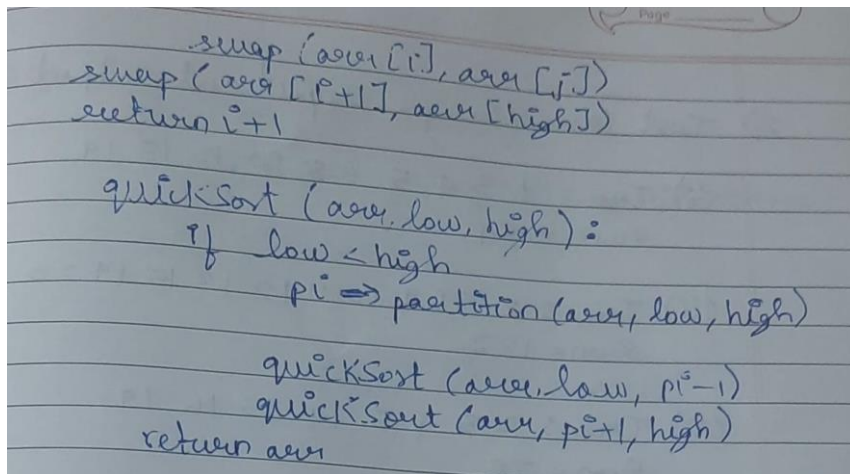 Page
swap (arr [i], arr [j])
swap (arr [i+1], arr [high])
return i+1
quickSort (arr, low, high) :
if low < high
pi => partition (arr, low, high)
quickSort (arr, low, pi-1)
quickSort (arr, pi+1, high)
return arr